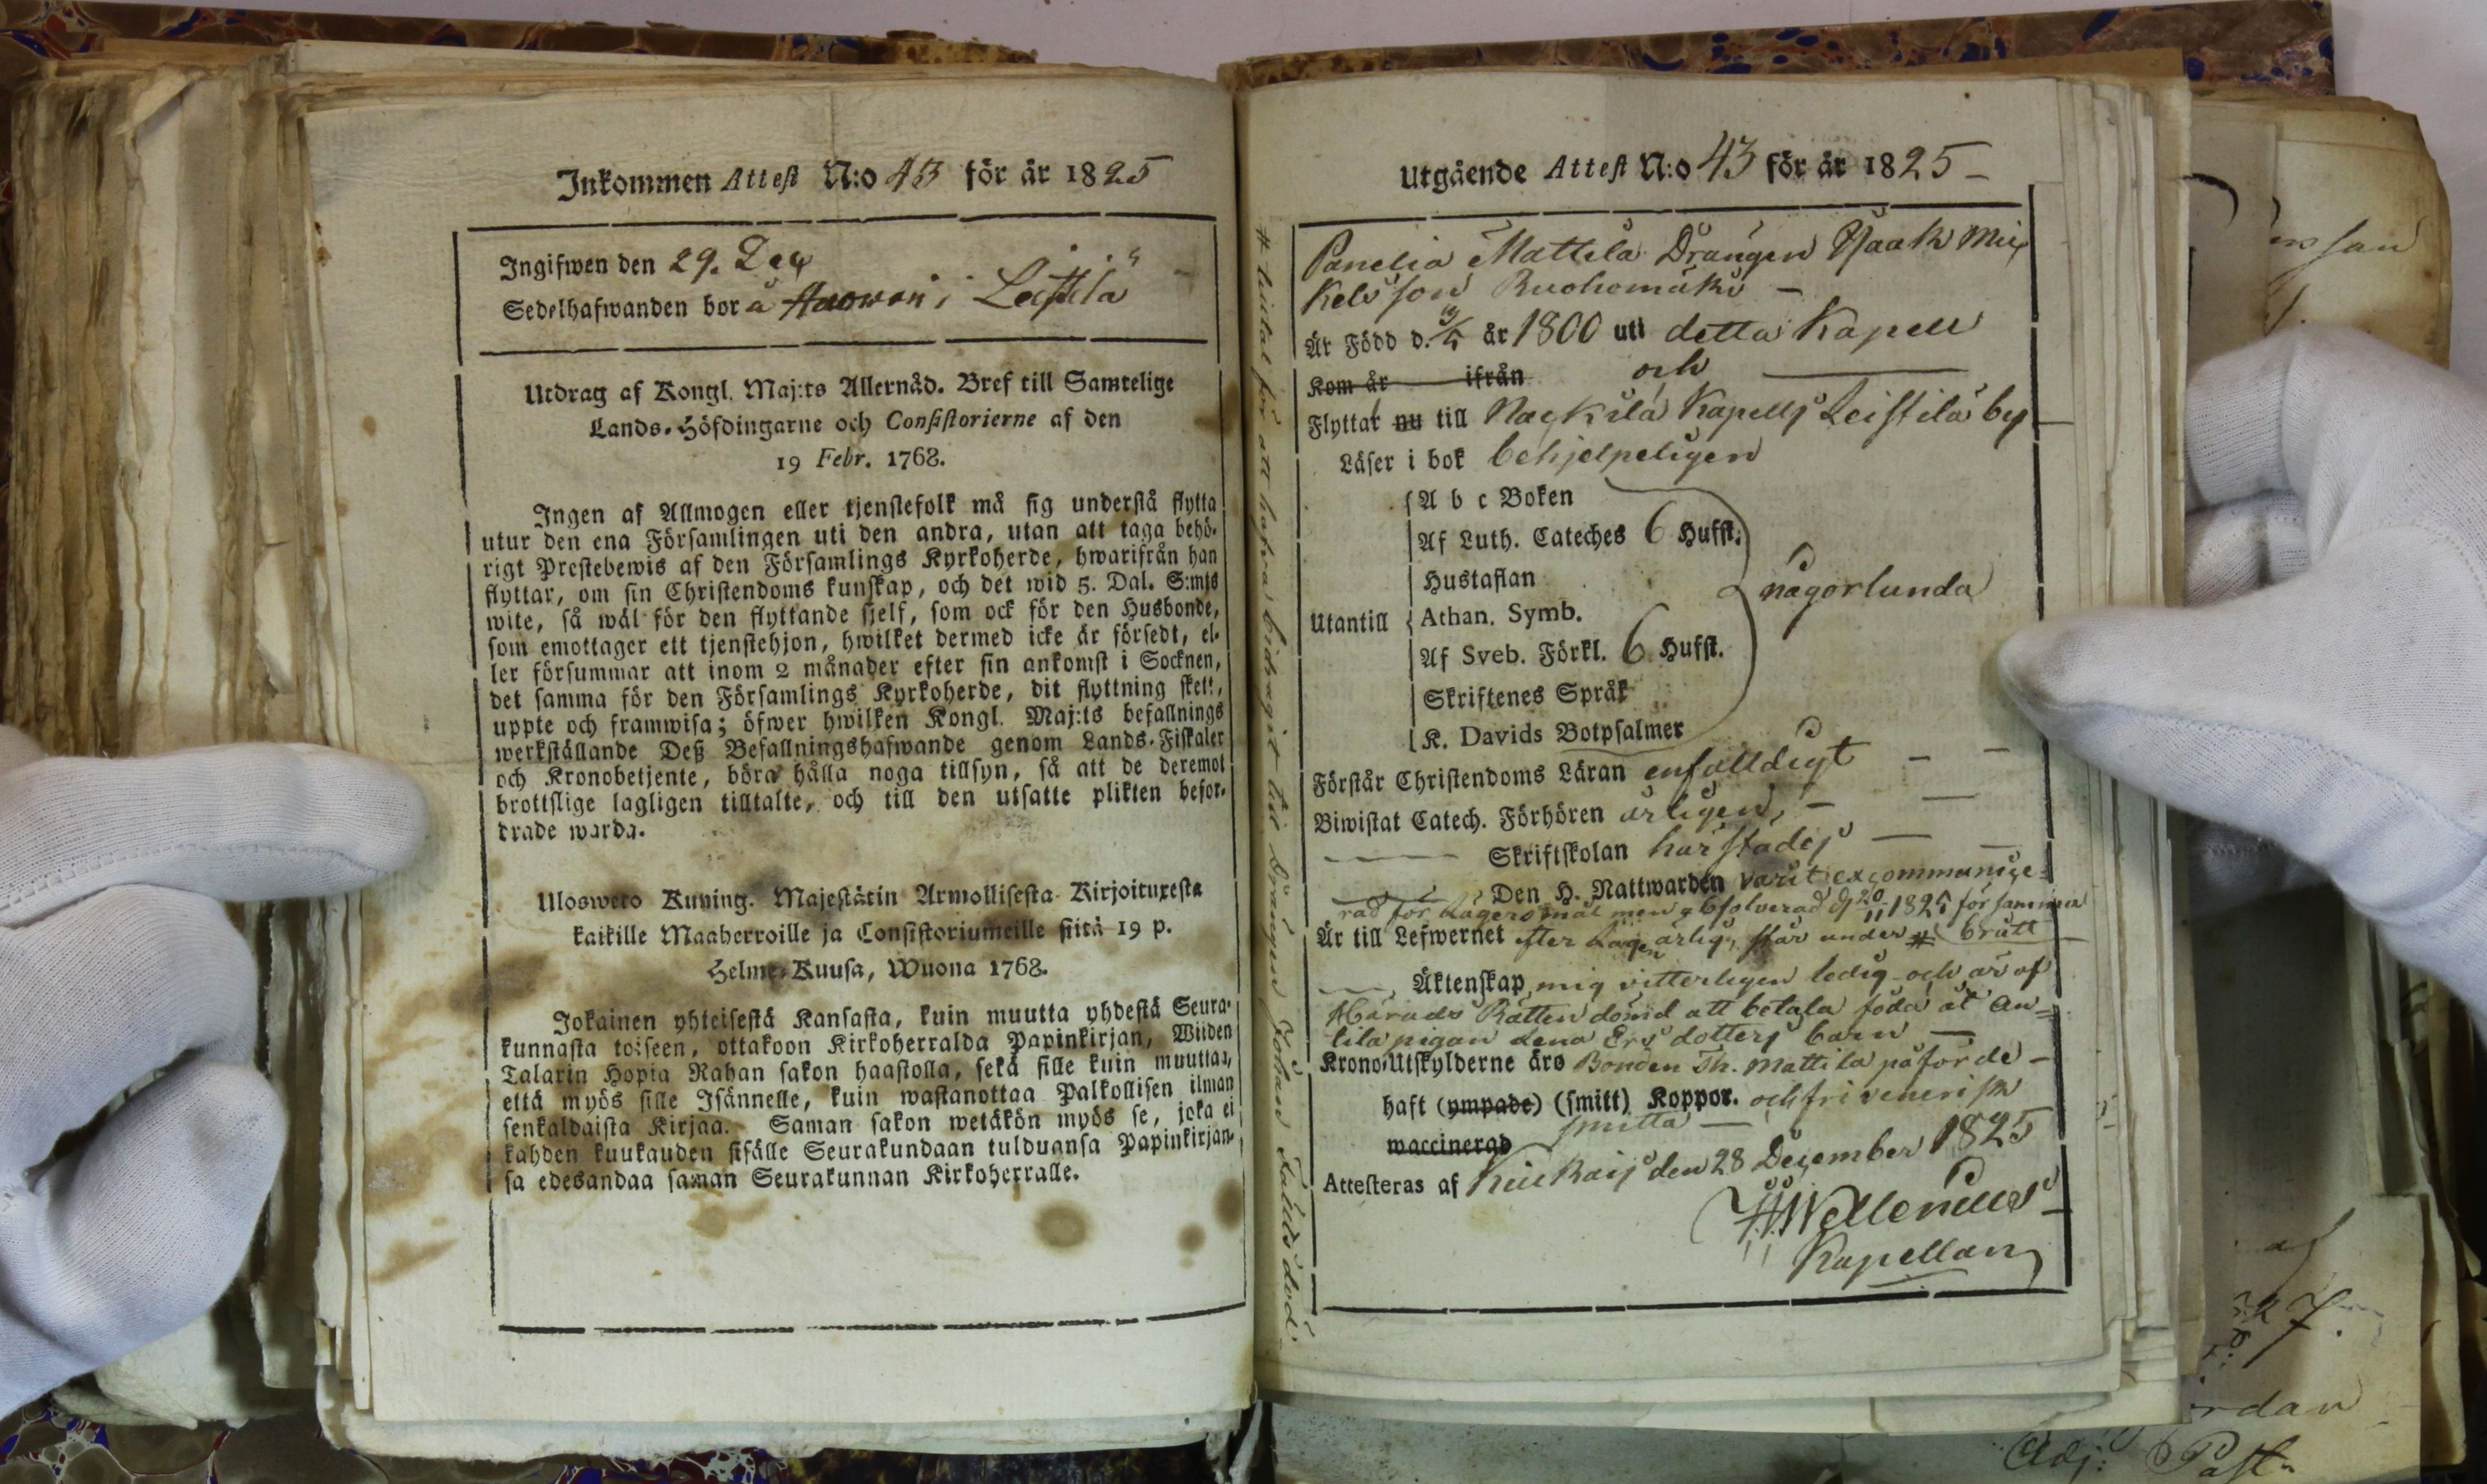 Inkommen Attest N:o 43 för år 1825
Ingifwen den 29. Dec
Sedelhafwanden bor å Haowon i Leistilä
Utdrag af Kongl. Maj:ts Allernåd. Bref till Samtelige
Lands-Höfdingarne och Consistorierne af den
19 Febr. 1768.
Ingen af Allmogen eller tjenstefolk må sig understå flytta
utur den ena Församlingen uti den andra, utan att taga behö-
rigt Prestebewis af den Församlings Kyrkoherde, hwarifrån han
flyttar, om sin Christendoms kunskap, och det wid 5. Dal. S:mts
wite, så wäl för den flyttande sjelf, som ock för den Husbonde,
som emottager ett tjenstehjon, hwilket dermed icke är försedt, el-
ler försummar att inom 2 månader efter sin ankomst i Socknen,
det samma för den Församlings Kyrkoherde, dit flyttning skett,
uppte och framwisa; öfwer hwilken Kongl. Maj:ts befallnings
werkställande Deß Befallningshafwande genom Lands-Fiskaler
och Kronobetjente, böra hålla noga tillsyn, så att de deremot
brottslige lagligen tilltalte, och till den utsatte plikten befor-
drade warda.
Uloswero Kuning. Majestätin Armollisesta Kirjoituxesta
kaikille Maaherroille ja Consistoriumeille siitä 19 p.
Helme-Kuusa, Wuona 1768.
Jokainen yhteisestä Kansasta, kuin muutta yhdestä Seura-
kunnasta toiseen, ottakoon Kirkoherralda Papinkirjan, Wiiden
Talarin Hopia Rahan sakon haastolla, sekä sille kuin muuttaa,
että myös sille Isännelle, kuin wastanottaa Palkollisen ilman
senkaldaista Kirjaa. Saman sakon wetäkön myös se, joka ei
kahden kuukauden sisälle Seurakundaan tulduansa Papinkirjan-
sa edesandaa saman Seurakunnan Kirkoherralle.
# bidragit till drängen Johan död.
Utgående Attest N:o 43 för år 1825 -
Panelia Mattila Drängen Isaak Mic
kelsson Ruohomäki -
Är Född d. år 1800 uti detta Kapell
Kom år ifrån och
Flyttat nu till Nackila Kapells Leistilä by
Läser i bok behjelpeligen
Utantill
A b c Boken
Af Luth. Cateches 6 Hufst.
Hustaflan
Athan. Symb.
Af Sveb. Förkl. 6 Hufst.
Skriftenes Språk
K. Davids Botpsalmer
någorlunda
Förstår Christendoms Läran enfalldigt - -
Biwistat Catech. Förhören årligen, -
Skriftskolan härstädes -
Den H. Nattwarden varit excommunice-
rad för Lägersmål men absolverad d 20/11 1825 för samma
Är till Lefwernet efter Lagen ärlig, står under # brått
Äktenskap mig vitterligen ledig och är af
Härads Rätten dömd att betala föda åt An-
tila pigan Lena Ersdotters barn -
Krono-Utskylderne äro Bonden Th. Mattila påförde -
haft (ympade) (smitt) Koppor. och fri venerisk
waccinerad smitta -
Attesteras af Kiukais den 28 December 1825
Wellenius
Kapellan